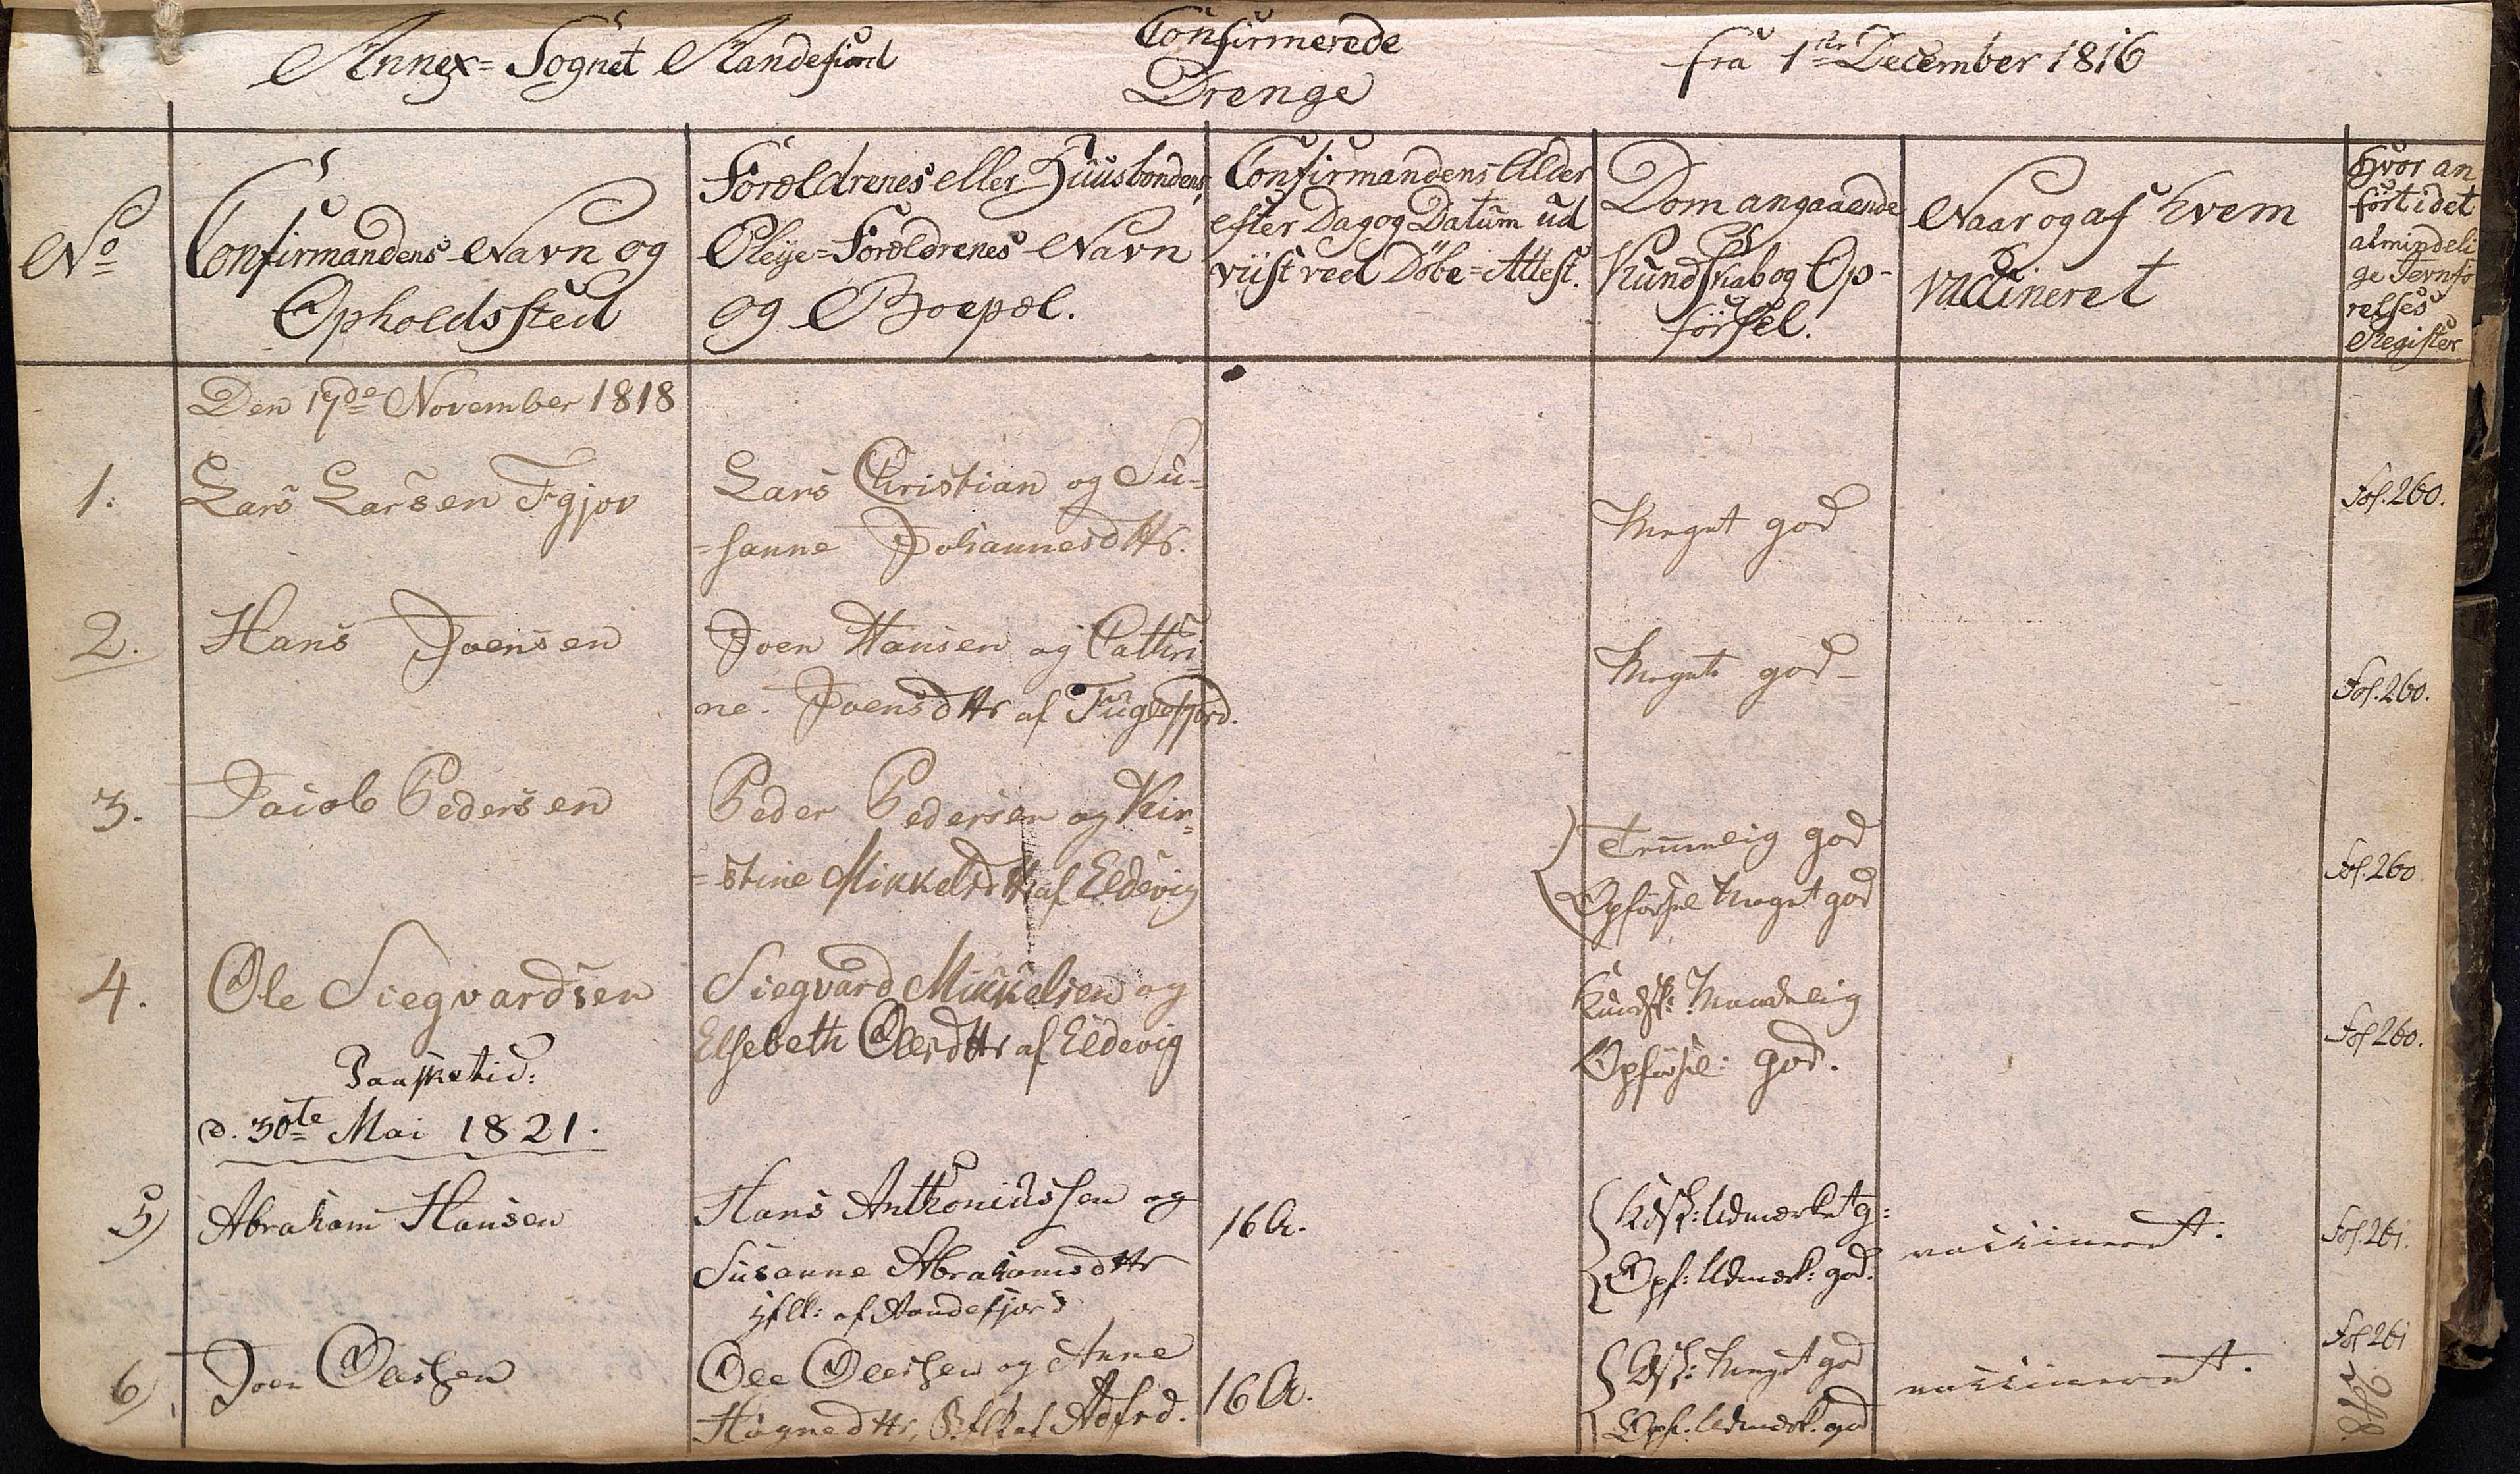 Annex= Sognet Andefiord
Confirmerede
Drenge
fra 1ste December 1816
No
Confirmandens Navn og
Opholdssted
Foroeldrenes eller Huusbondens,
Pleije=Foroeldrenes Navn
og Boepoel.
Confirmandens Alder
efter Dag og Datum ud
viist ved Döbe=Attest.
Dom angaaende
Kundskab og Op-
försel.
Naar og af hvem
vaccineret
Hvor an
fört i det
almindeli
ge Jevnfö
relses
Register
Den 17de November 1818
1.
Lars Larsen
Lars Christian og Su-
=sanne Johannesdttr.
Meget god
Fol. 260.
2.
Hans Joensen
Joen Hansen og Cathri-
ne Joensdttr af Fuglefjord.
Meget god
Fol. 260.
3.
Jacob Pedersen
Peder Pedersen og Kir=
=stine Mikkelsdttr af Eldevig
Temmelig god
Opförsel Meget god
Fol. 260
4.
Ole Siegvardsen
Siegvard Mikkelsen og
Elsebeth Olesdttr af Eldevig
Kundsk: Maadelig
Opförsel: god.
Fol 260.
Pansketid:
d. 30te Mai 1821.
5)
Abraham Hansen
Hans Anthoniussen og
Susanne Abrahamsdttr
af Andefjord
16 A.
Kdsk: Udmærket g:
Opf: Udmærk: god.
vaccineret.
Fol. 261.
6)
Joen Olessen
Ole Olessen og Anne
Hognedttr, af Adfrd.
16 A.
Kdsk: Meget god
Opf. Udmærk. god
vaccineret.
Fol 261